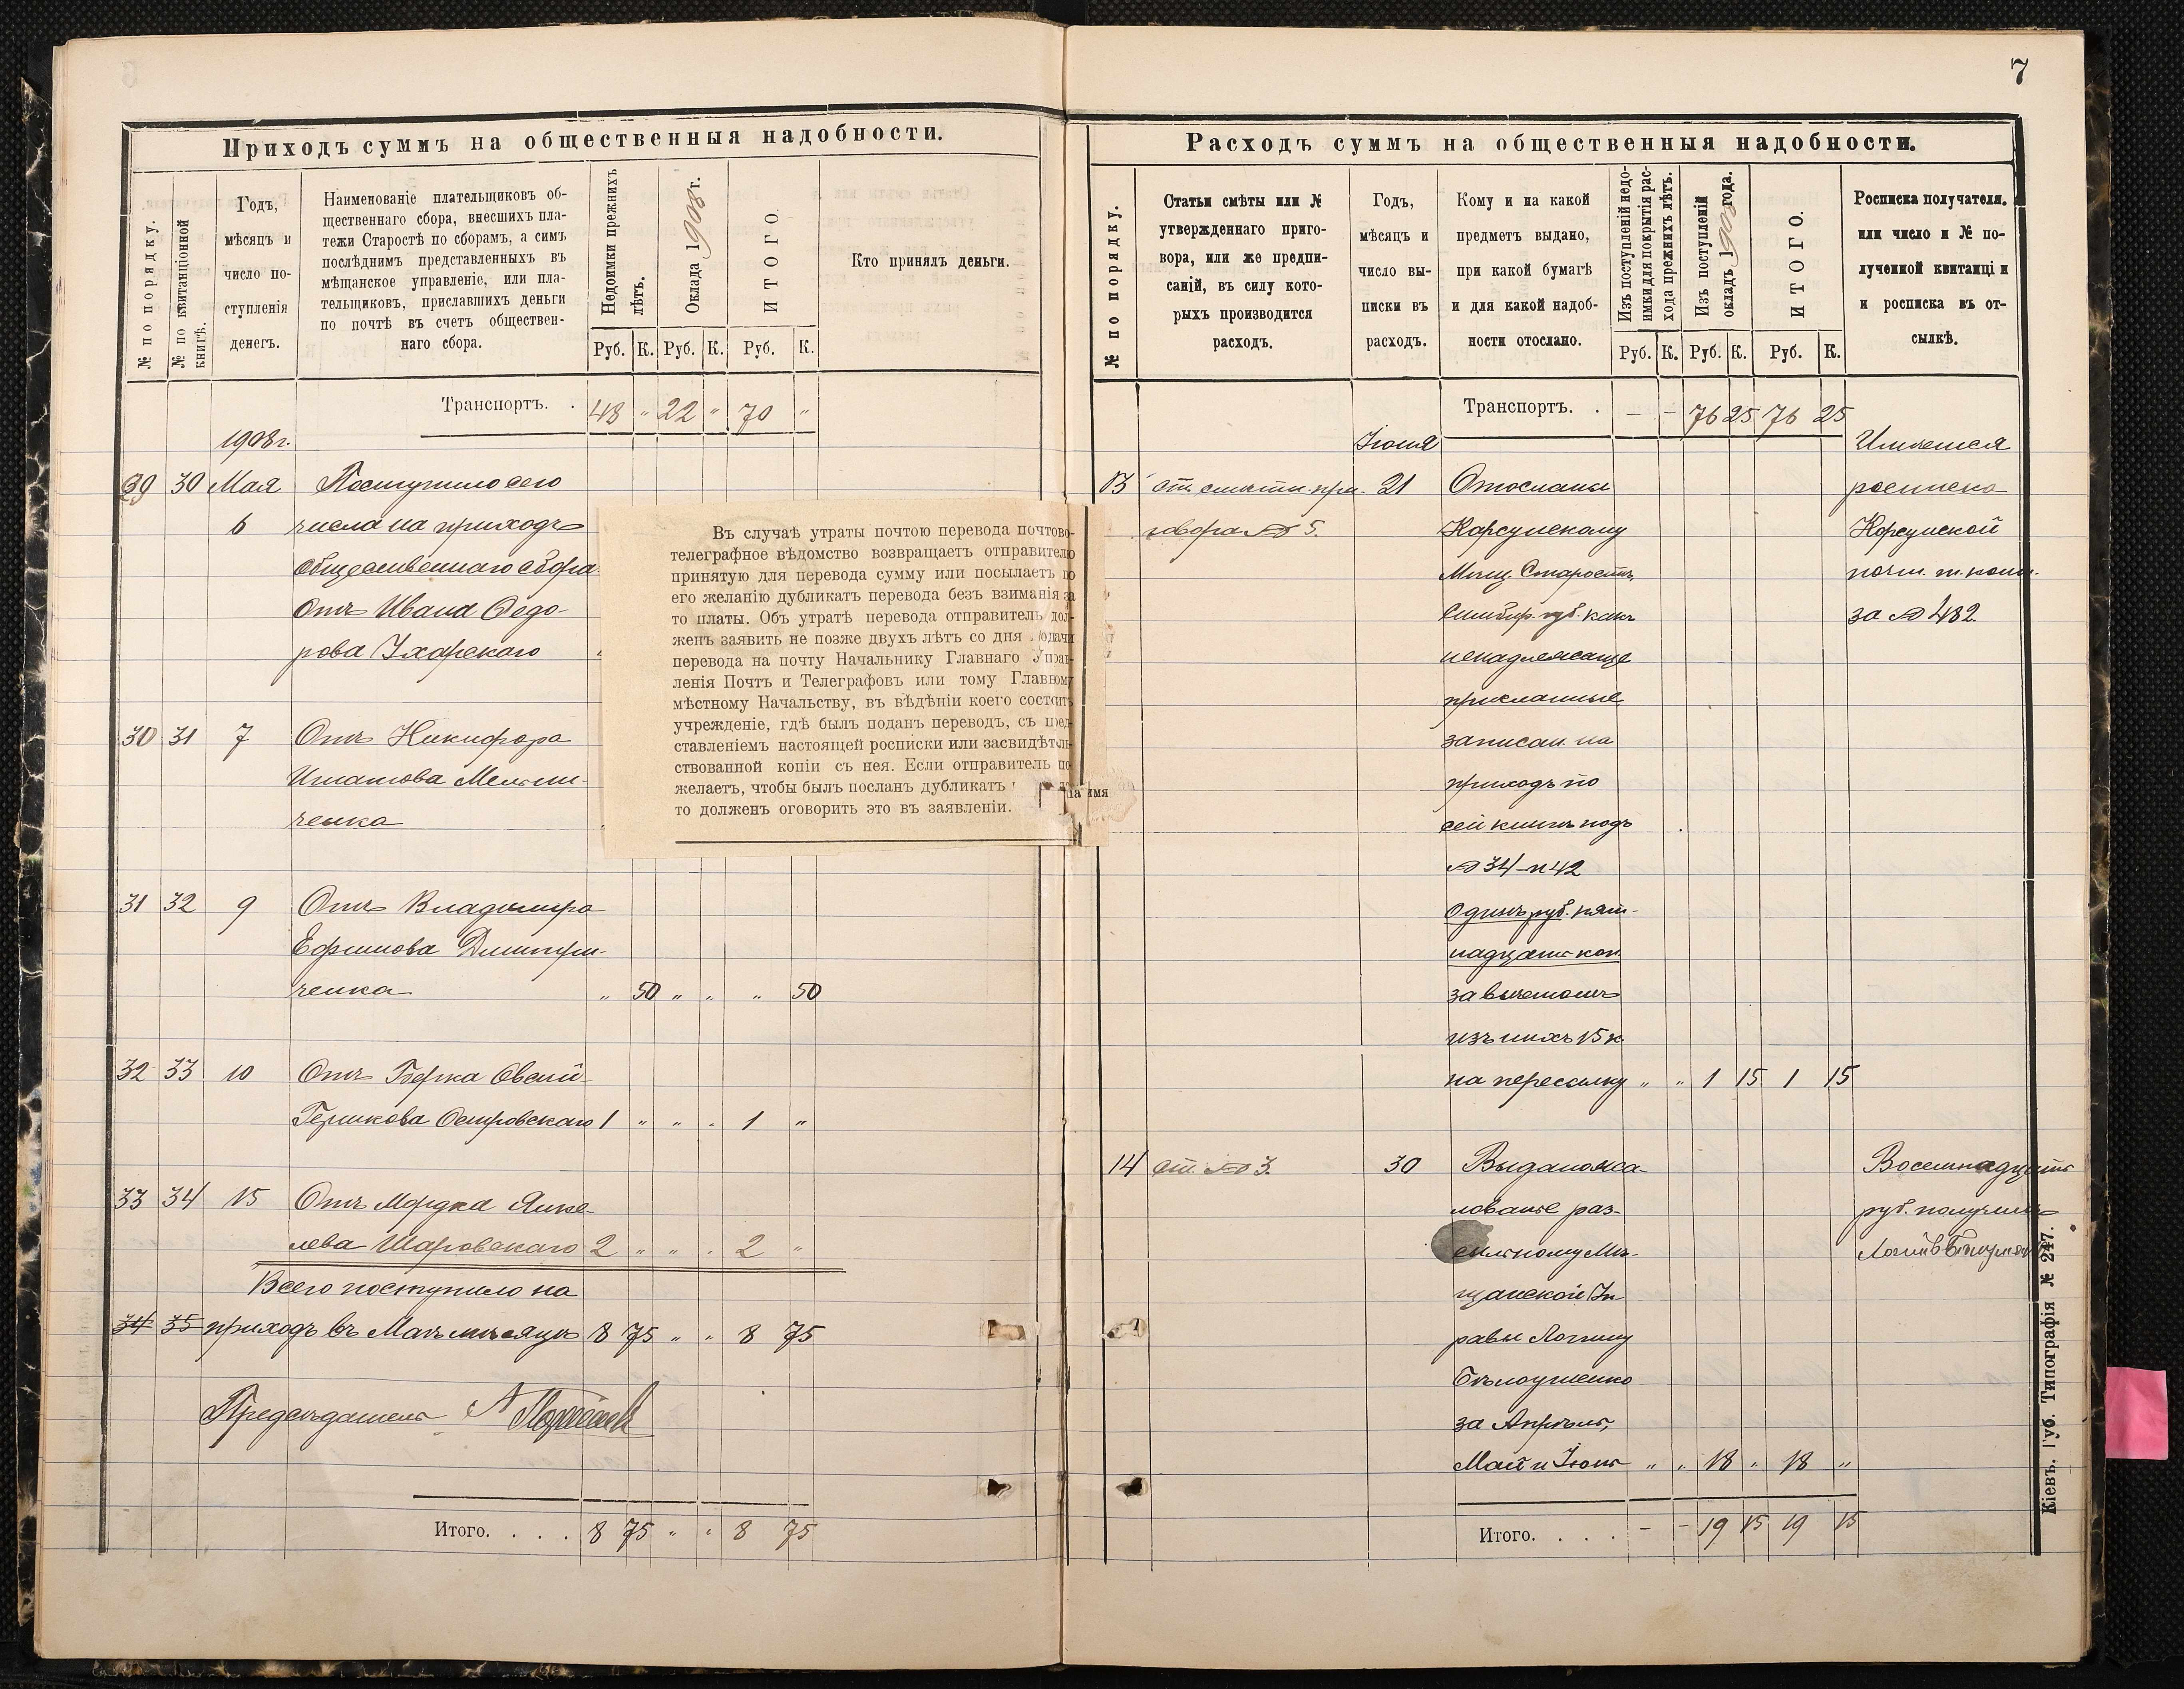 Приходъ суммъ на общественныя надобности.
№ по порядку.
№ по квитанціонной книгѣ.
Годъ,
мѣсяцъ и
число по-
ступленія
денегъ.
Наименованіе плательщиковъ об-
щественнаго сбора, внесшихъ пла-
тежи Старостѣ по сборамъ, а симъ
послѣднимъ представленныхъ въ
мѣщанское управленіе, или пла-
тельщиковъ, приславшихъ деньги
по почтѣ въ счетъ обществен-
наго сбора.
Недоимки прежнихъ лѣтъ.
Оклада 1908 г.
ИТОГО.
Кто принялъ деньги.
Руб. К. Руб. К. Руб. К.
Транспортъ. . 48 " 22 " 70 "
1908 г.
29 30 Мая Поступило сего
6 числа на приходъ
общественнаго сбора
Отъ Ивана Ѳедо-
рова
30 31 7 Отъ Никифора
Игнатова Мельни-
ченка
31 32 9 Отъ Владимира
Ефимова Дмитри-
ченка " 50 " " " 50
32 33 10 Отъ Берка Овсій-
Гершкова Островскаго 1 " " " 1 "
33 34 15 Отъ Мордка Янке-
лева Шаровскаго 2 " " " 2 "
Всего поступило на
34 35 приходъ въ Маѣ мѣсяцѣ 8 75 " " 8 75
Предсѣдатель
Итого. . . . 8 75 " " 8 75
Въ случаѣ утраты почтою перевода почтово-
телеграфное вѣдомство возвращаетъ отправителю
принятую для перевода сумму или посылаетъ по
его желанію дубликатъ перевода безъ взиманія за
то платы. Объ утратѣ перевода отправитель дол-
женъ заявить не позже двухъ лѣтъ со дня подачи
перевода на почту Начальнику Главнаго Управ-
ленія Почтъ и Телеграфовъ или тому Главному
мѣстному Начальству, въ вѣдѣніи коего состоитъ
учрежденіе, гдѣ былъ поданъ переводъ, съ пред-
ставленіемъ настоящей росписки или засвидѣтель-
ствованной копіи съ нея. Если отправитель по-
желаетъ, чтобы былъ посланъ дубликатъ
то долженъ оговорить это въ заявленіи.
на имя
7
Расходъ суммъ на общественныя надобности.
№ по порядку.
Статьи смѣты или №
утвержденнаго приго-
вора, или же предпи-
саній, въ силу кото-
рыхъ производится
расходъ.
Годъ,
мѣсяцъ и
число вы-
писки въ
расходъ.
Кому и на какой
предметъ выдано,
при какой бумагѣ
и для какой надоб-
ности отослано.
Изъ поступленій недо-
имки для покрытія рас-
хода прежнихъ лѣтъ.
Изъ поступленій
окладъ 1908 года.
ИТОГО.
Росписка получателя.
или число и № по-
лученной квитанціи
и росписка въ от-
сылкѣ.
Руб. К. Руб. К. Руб. К.
Транспортъ. . — — 76 25 76 25
Іюня Имѣется
13 ст. смѣты при- 21 Отосланы росписка
говора № 5. Корсунскому Корсунской
Мѣщ. Старостѣ, почт. т. конт.
Симбир. губ. какъ за № 482
ненадлежаще
присланные
записан. на
приходъ по
сей книгѣ подъ
№ 34 и 42
Одинъ руб. пят-
надцать коп.
за вычетомъ
изъ нихъ 15 к.
на пересылку " " 1 15 1 15
14 ст. № 3. 30 Выдано жа- Восемнадцать
лованье раз- руб. получилъ
сыльному Мѣ-
щанской Уп-
равы Логину
Бѣлоушенко
за Апрѣль,
Май и Іюнь " " 18 " 18 "
Итого. . . . — — 19 15 19 15
Кіевъ. Губ. Типографія № 247.